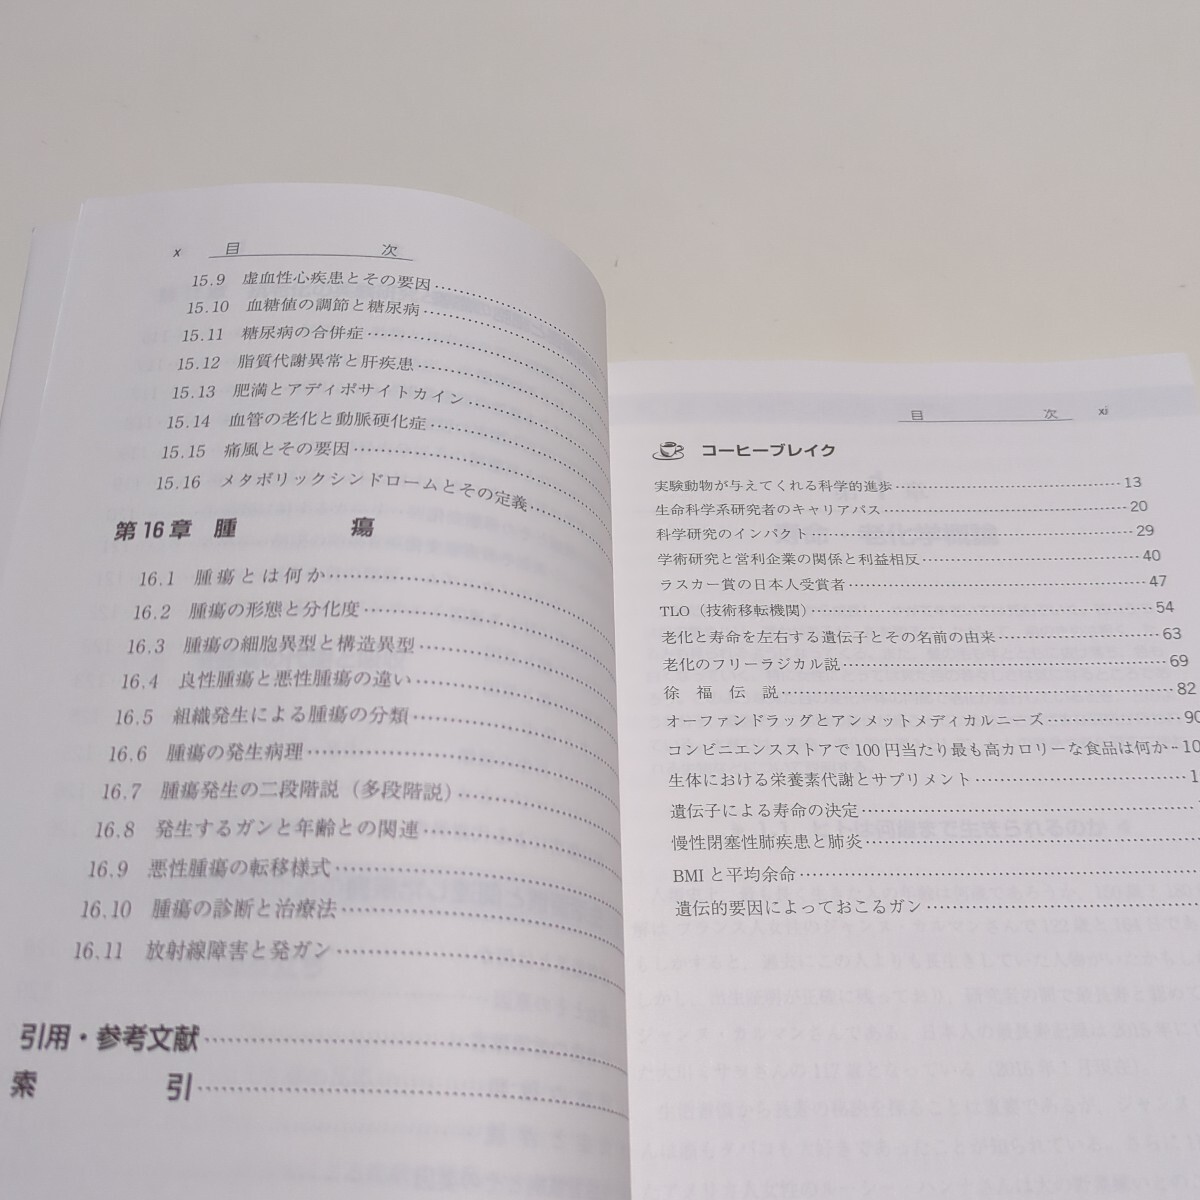 x 目 次
15.9 虚血性心疾患とその要因
15.10 血糖値の調節と糖尿病
15.11 糖尿病の合併症
15.12 脂質代謝異常と肝疾患
15.13 肥満とアディポサイトカイン
15.14 血管の老化と動脈硬化症
15.15 痛風とその要因
15.16 メタボリックシンドロームとその定義
第16章 腫 瘍
16.1 腫瘍とは何か
16.2 腫瘍の形態と分化度
16.3 腫瘍の細胞異型と構造異型
16.4 良性腫瘍と悪性腫瘍の違い
16.5 組織発生による腫瘍の分類
16.6 腫瘍の発生病理
16.7 腫瘍発生の二段階説（多段階説）
16.8 発生するガンと年齢との関連
16.9 悪性腫瘍の転移様式
16.10 腫瘍の診断と治療法
16.11 放射線障害と発ガン
引用・参考文献
索 引
目 次 xi
コーヒーブレイク
実験動物が与えてくれる科学的進歩 13
生命科学系研究者のキャリアパス 20
科学研究のインパクト 29
学術研究と営利企業の関係と利益相反 40
ラスカー賞の日本人受賞者 47
TLO（技術移転機関） 54
老化と寿命を左右する遺伝子とその名前の由来 63
老化のフリーラジカル説 69
徐福伝説 82
オーファンドラッグとアンメットメディカルニーズ 90
コンビニエンスストアで100円当たり最も高カロリーな食品は何か 10
生体における栄養素代謝とサプリメント 1
遺伝子による寿命の決定
慢性閉塞性肺疾患と肺炎
BMIと平均余命
遺伝的要因によっておこるガン